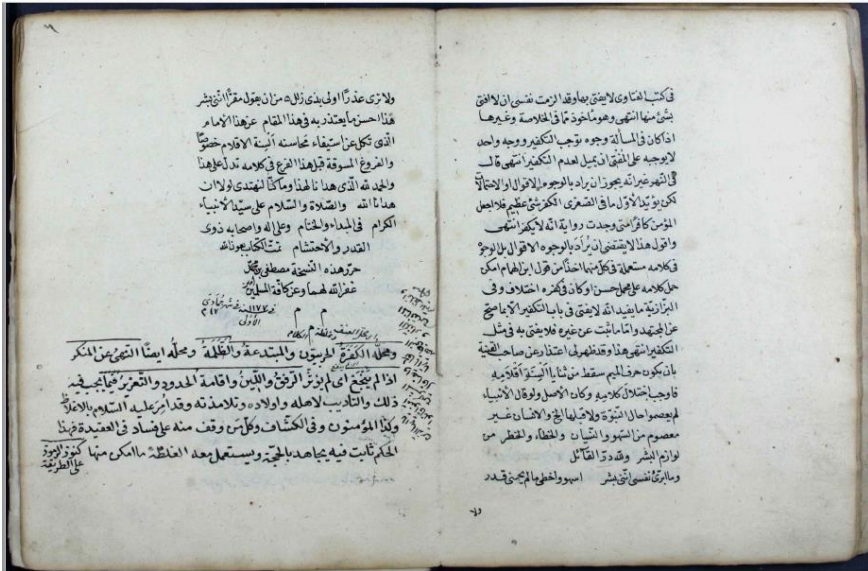 فى كتب الفتاوى لا يفتى بها وقد الزمت نفسى ان لا افتى
بشئ منها انتهى وهو مأخوذ مما فى الخلاصة وغيرها
اذا كان فى المسألة وجوه توجب التكفير ووجه واحد
لا يوجبه على المفتى ان يميل لعدم التكفير انتهى قال
فى النهر غير انه يجوز ان يراد بالوجوه الاقوال والاحتمالات
لكن يؤيد الاول ما فى الصغرى الكفر شئ عظيم فلا اجعل
المؤمن كافرا متى وجدت رواية انه لا يكفر انتهى
واقول هذا لا يقتضى ان يراد بالوجوه الاقوال بل الوجوه
فى كلامه مستعملة فى كل منها اخذا من قول ابن الهمام امكن
حمل كلامه على محمل حسن او كان فى كفره اختلاف وفى
البزازية ما يفيد انه لا يفتى فى باب التكفير الا بما صح
عن المجتهد واما ما يثبت عن غيره فلا يفتى به فى مثل
التكفير انتهى هذا وقد ظهر لى اعتذار عن صاحب القنية
بان يكون حرف الميم سقط من ثنايا السنة اقلامه
فاوجب اختلال كلامه وكان الاصل ولو قال الانبياء
لم يعصوا حال النبوة ولا قبلها الخ والانسان غير
معصوم من السهو والنسيان والخطاء والخطر من
لوازم البشر ولله در القائل
وما ابرئ نفسى اننى بشر اسهو واخطى ما لم يحمنى قدر
ولا
ولا ترى عذرا اولى بذى زلل من ان يقول مقرا اننى بشر
هذا احسن ما يعتذر به فى هذا المقام عن هذا الامام
الذى تكل عن استيفاء محاسنه السنة الاقلام خصوصا
والفروع المسوقة قبل هذا الفرع فى كلامه تدل على هذا
والحمد لله الذى هدانا لهذا وما كنا لنهتدى لولا ان
هدانا الله والصلاة والسلام على سيد الانبياء
الكرام فى المبداء والختام وعلى اله واصحابه ذوى
القدر والاحتشام تمت الكتاب بعون الله
حرر هذه النسخة مصطفى بن محمد
غفر الله لهما وعن كافة المسلمين
م م
م
ومحله الكفرة الحربيون والمبتدعة والظلمة ومحله ايضا النهى عن المنكر
اذا لم ينجع اى لم يؤثر الرفق واللين واقامة الحدود والتعزير فيما يجب فيه
ذلك والتأديب لاهله واولاده وتلامذته وقد امر عليه السلام بالاغلاظ
وكذا المؤمنون وفى الكشاف وكل من وقف منه على فساد فى العقيدة فهذا
الحكم ثابت فيه يجاهد بالحجة ويستعمل معه الغلظة ما امكن منها
على الطريقة